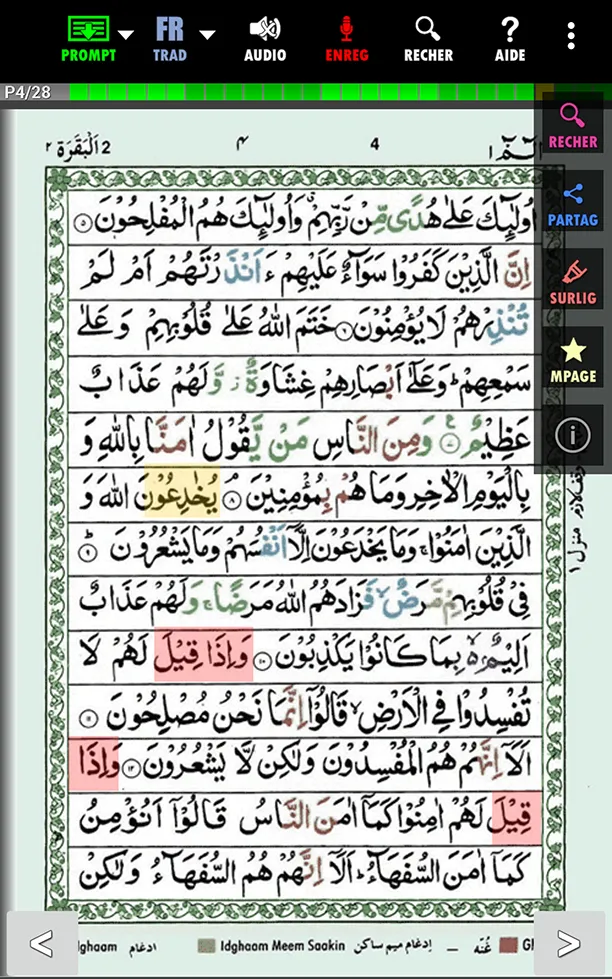 PROMPT
FR
TRAD
AUDIO
ENREG
RECHER
AIDE
P4/28
RECHER
PARTAG
SURLIG
MPAGE
2 اَلْبَقَرَة ٢
٤
4
الٓمّٓ ١
اُولٰٓئِكَ عَلٰى هُدًى مِّنْ رَّبِّهِمْ ۙ وَاُولٰٓئِكَ هُمُ الْمُفْلِحُوْنَ ۝٥
اِنَّ الَّذِيْنَ كَفَرُوْا سَوَآءٌ عَلَيْهِمْ ءَاَنْذَرْتَهُمْ اَمْ لَمْ
تُنْذِرْهُمْ لَا يُؤْمِنُوْنَ ۝٦ خَتَمَ اللّٰهُ عَلٰى قُلُوْبِهِمْ وَ عَلٰى
سَمْعِهِمْ ؕ وَعَلٰٓى اَبْصَارِهِمْ غِشَاوَةٌ ز وَّلَهُمْ عَذَابٌ
عَظِيْمٌ ۝٧ وَمِنَ النَّاسِ مَنْ يَّقُوْلُ اٰمَنَّا بِاللّٰهِ وَ
بِالْيَوْمِ الْاٰخِرِ وَمَا هُمْ بِمُؤْمِنِيْنَ ۝٨ يُخٰدِعُوْنَ اللّٰهَ وَ
الَّذِيْنَ اٰمَنُوْا ۚ وَمَا يَخْدَعُوْنَ اِلَّاۤ اَنْفُسَهُمْ وَمَا يَشْعُرُوْنَ ۝٩
فِيْ قُلُوْبِهِمْ مَّرَضٌ ۙ فَزَادَهُمُ اللّٰهُ مَرَضًا ۚ وَلَهُمْ عَذَابٌ
اَلِيْمٌ ۙ بِمَا كَانُوْا يَكْذِبُوْنَ ۝١٠ وَاِذَا قِيْلَ لَهُمْ لَا
تُفْسِدُوْا فِي الْاَرْضِ ۙ قَالُوْٓا اِنَّمَا نَحْنُ مُصْلِحُوْنَ ۝١١
اَلَاۤ اِنَّهُمْ هُمُ الْمُفْسِدُوْنَ وَلٰكِنْ لَّا يَشْعُرُوْنَ ۝١٢ وَاِذَا
قِيْلَ لَهُمْ اٰمِنُوْا كَمَاۤ اٰمَنَ النَّاسُ قَالُوْٓا اَنُؤْمِنُ
كَمَاۤ اٰمَنَ السُّفَهَآءُ ؕ اَلَاۤ اِنَّهُمْ هُمُ السُّفَهَآءُ وَلٰكِنْ
منزل ١
ادغام Idghaam Meem Saakin إدغام ميم ساكن غُنّه